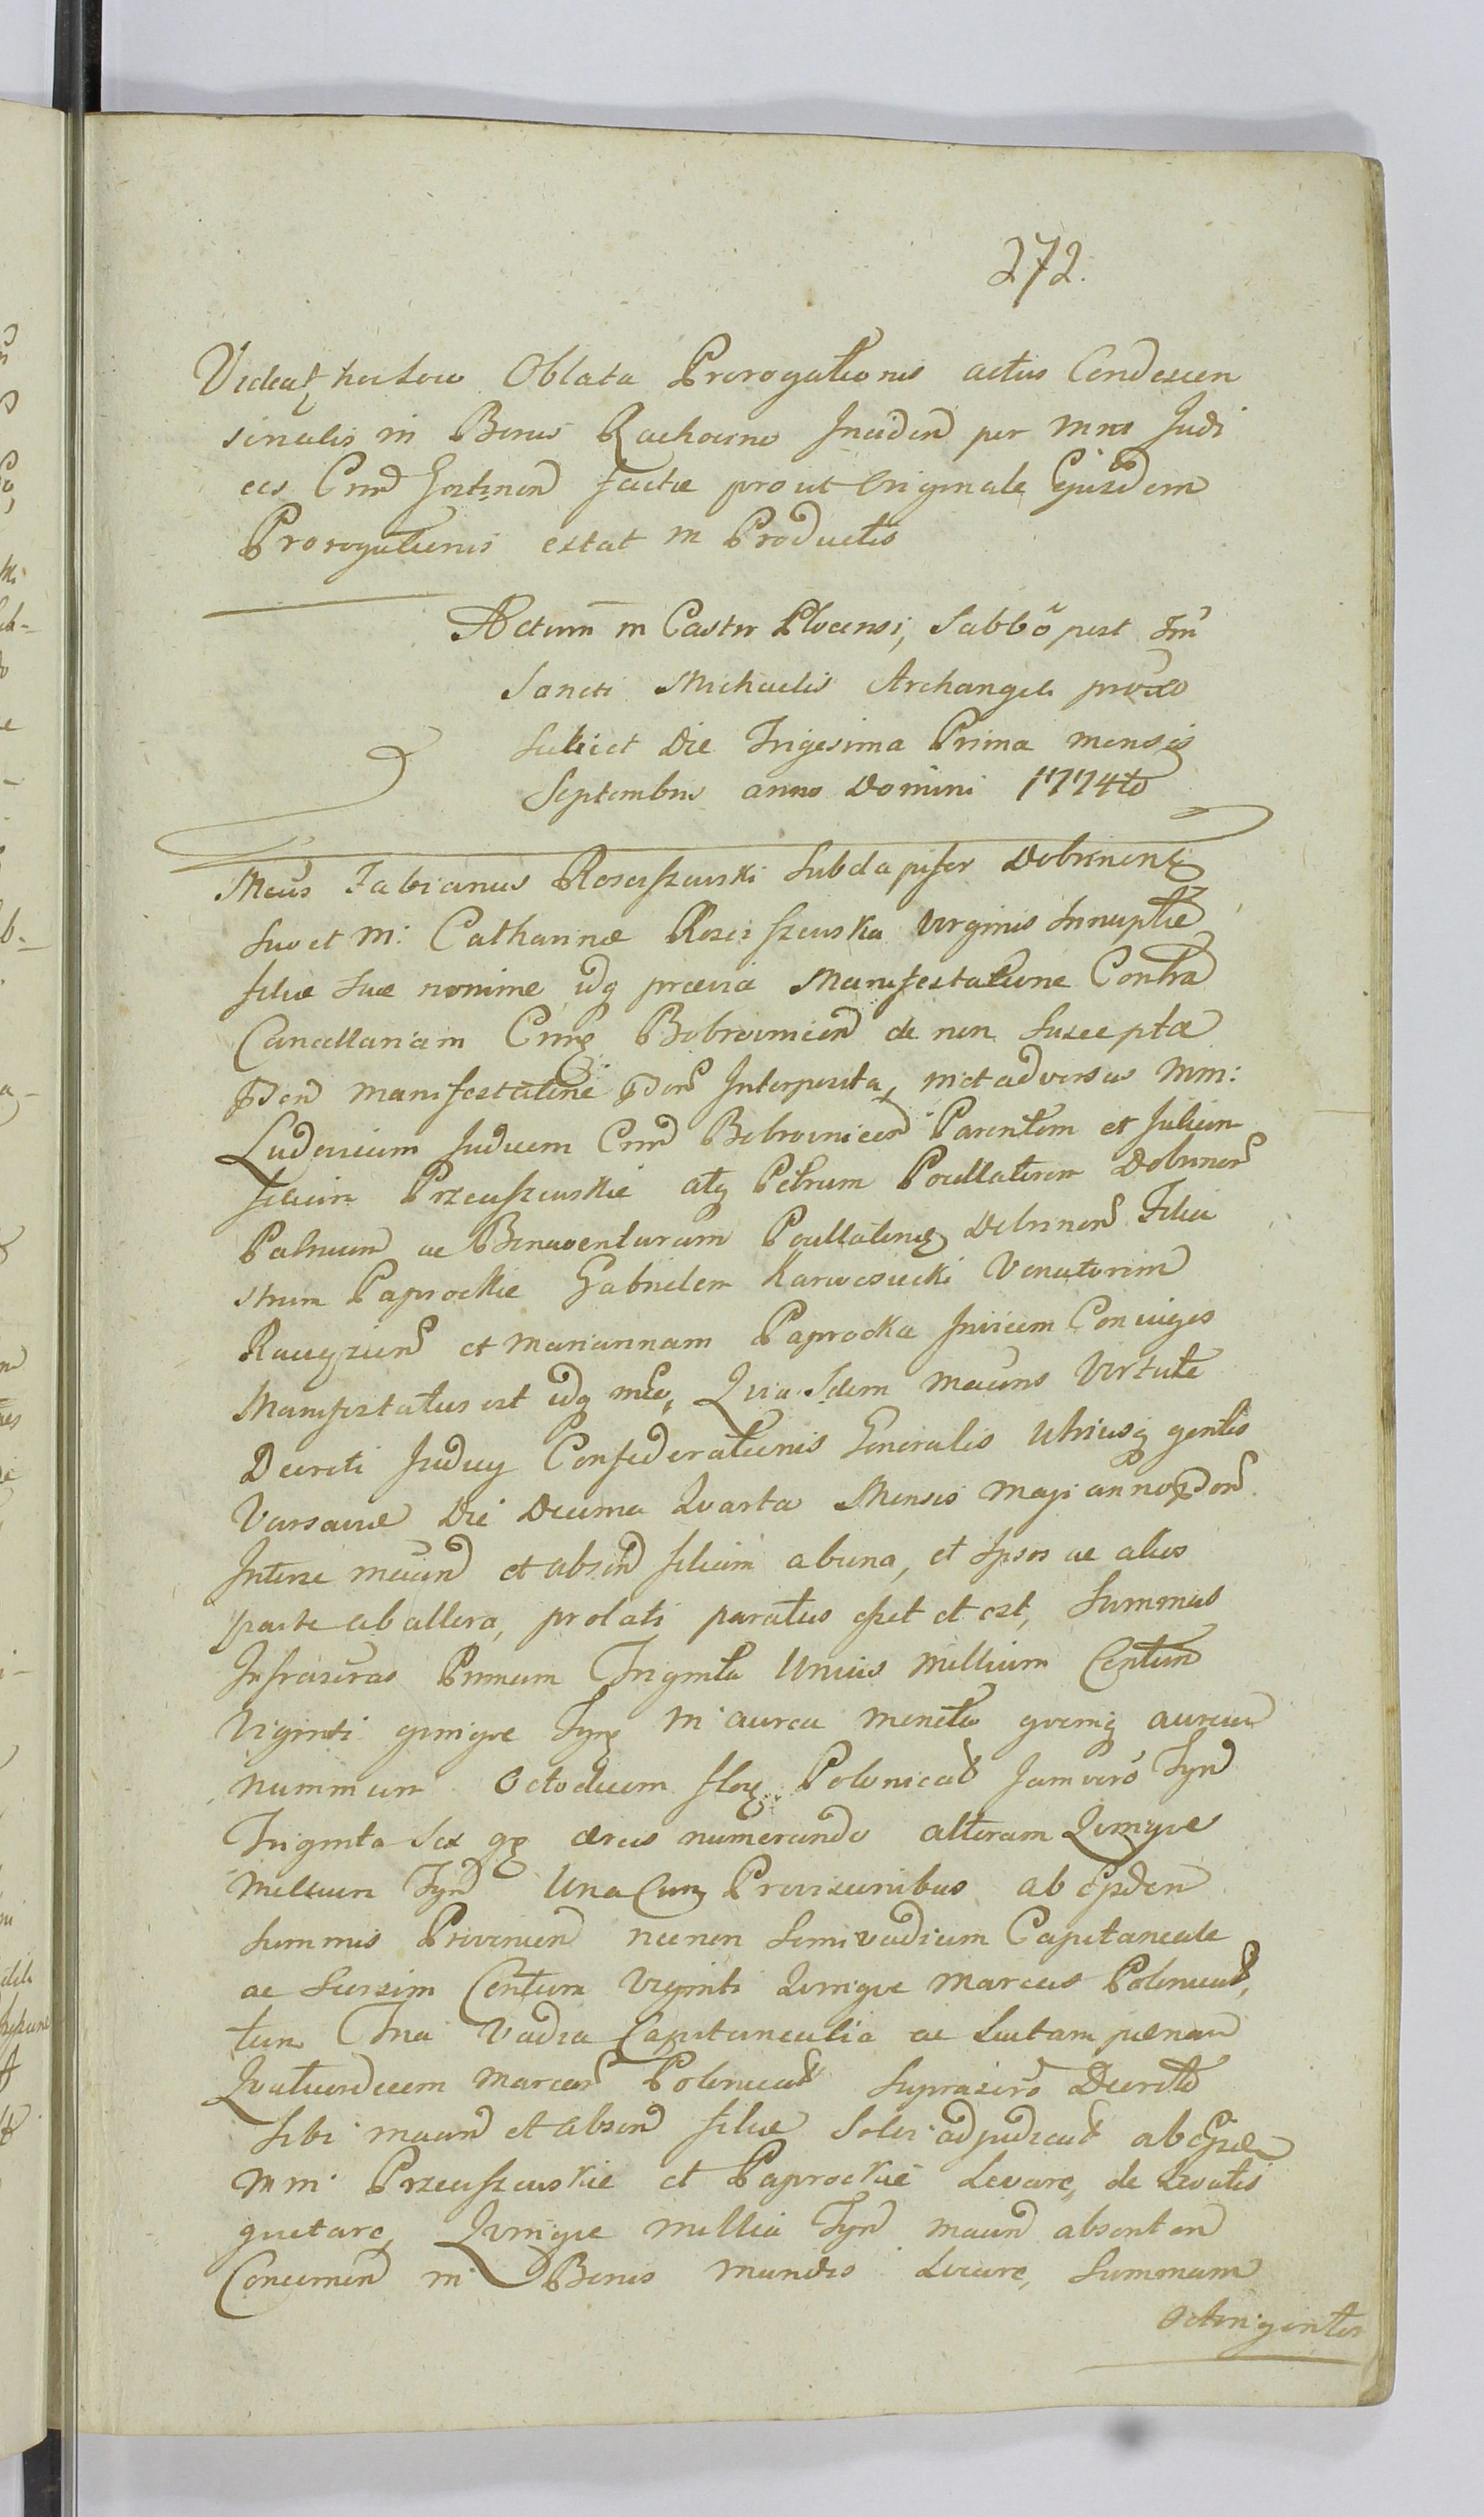 272.
Videat hoc Loco Oblata Prorogationis actus Condescen
sinalis in Bonis Rachocino Inciden per Mnos Judi
ces Crnd Gostinen factae prout Originale Ejusdem
Prorogationis extat in Productis
Actum in Castro Plocensi, Sabbo post Fm
Sancti Michaelis Archangeli proxo
Scilicet Die Trigesima Prima mensis
Septembris anno Domini 1774to
Mcus Fabianus Rosciszewski Subdapifer Dobrinens
Suo et M: Catharinae Rosciszewska Virginis Innuptae
filiae suae nomine idq praevia Manifestatione Contra
Cancellariam Bobrovnicen de non Suscepta
manifestatine Interposita, in et adversus Mm:
Ludovicum Judicem Crnd Bobrovnicen Parentem et Julian
filium Przeciszewskie atq Petrum Pocillatorem Dobrinen
Patruum ac Bonaventuram Pocillatoris Dobrinen Filia
strum Paprockie Gabrielem Karwosiecki Venatorem
et Mariannam Paprocka Invicem Coniuges
Manifestatus est idq Quia Idem Virtute
Decreti Judicy Confederationis Generalis Utriusq gentis
Varsaviae Die Decima Quarta Mensis Maji anno
Inter se et absen filiam ab una, et Ipsos ac alios
parte ab altera, prolati paratus esset et est, Summas
Infrascras Primam Triginta Unius Millium Centum
Viginti quinque in aurea moneta quemq aureum
nummum Octodecim flor Polonical jam vero Tynd
Triginta Sex gr aereis numerando alteram Quinque
Millium Tynd Una Cum Provisionibus ab
summis Provenien necnon Semivadium Capitaneale
ac Seorsim Centum Viginti Quinque Marcas Polonical,
tum Tria Vadia Capitanealia ac Luitam paenam
Quatuordecem Marcar Polonical Suprascro Decreto
sibi et absen filiae Solvi adjudical ab
Mm: Przeciszewskie et Paprockie Levare, de Levatis
quietare, Quinque millia Tynd absenten
Concernen in Bonis mundis Locare, Summam
Octingentor